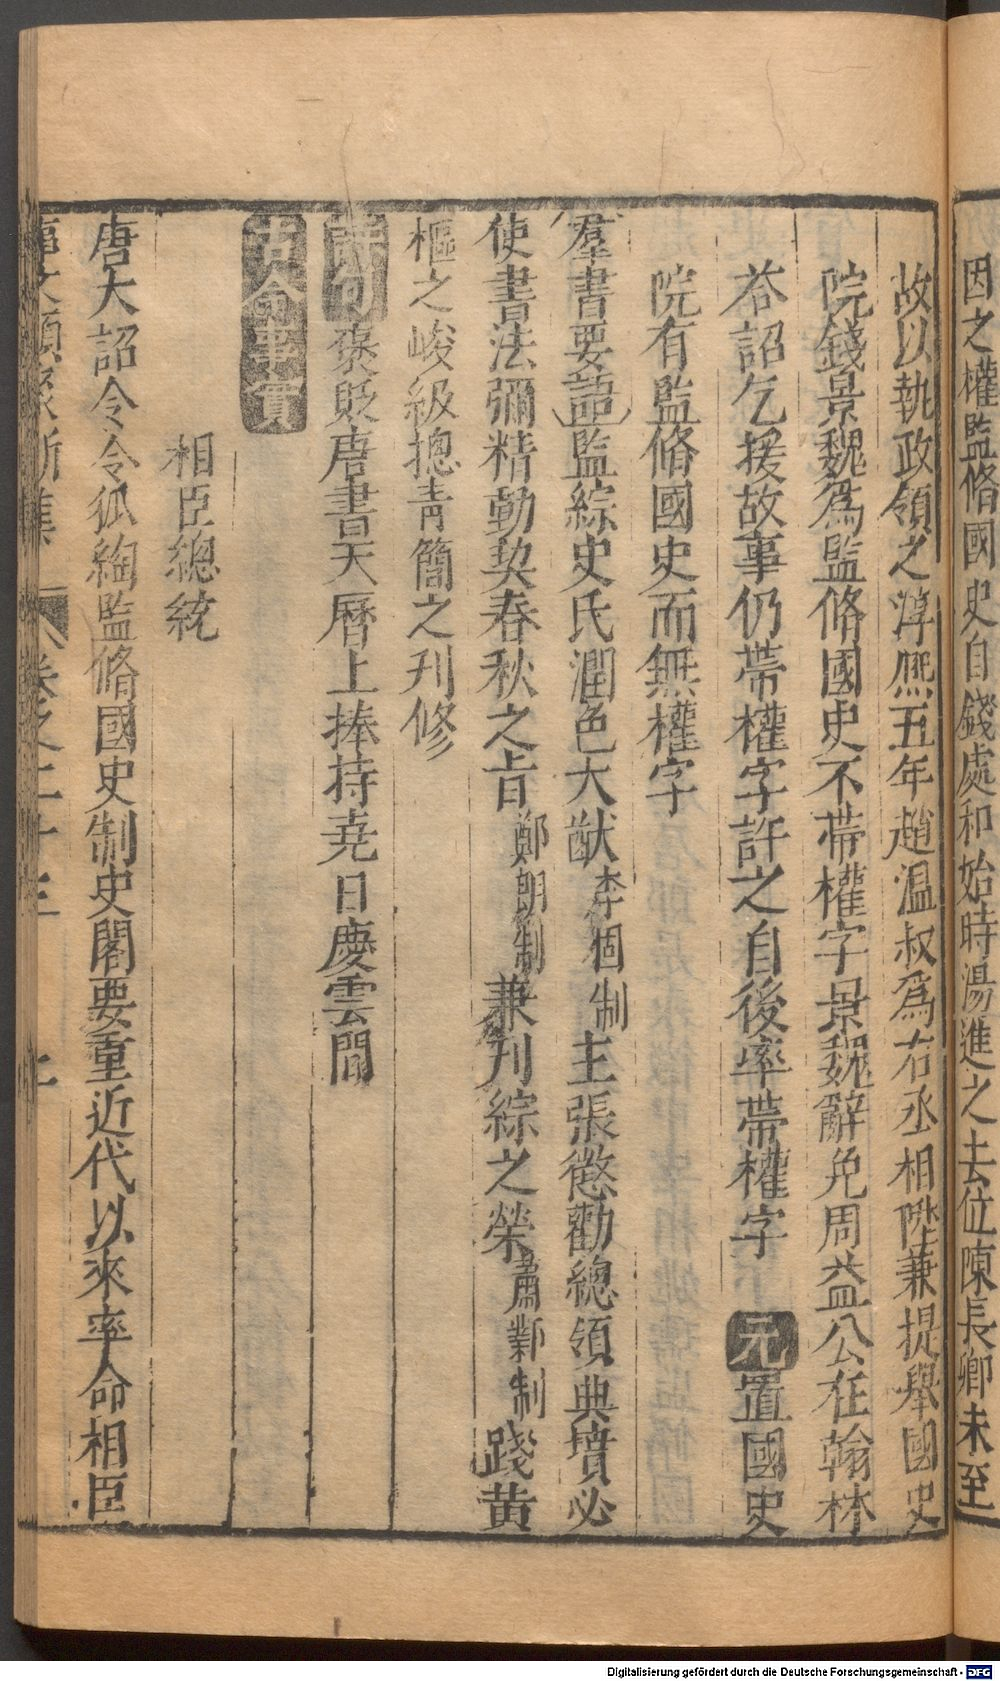 因之權監脩國史自錢處和始時湯進之去位陳長卿未至
故以執政領之淳熈五年趙温叔爲右丞相陞兼提舉國史
院錢景魏爲監脩國史不帶權字景魏辭免周益公在翰林
荅詔乞援故事仍帶權字許之自後率帶權字 元置國史
院有監脩國史而無權字
羣書要語 監綜史氏潤色大猷李絪制主張懲勸總領典墳必
使書法彌精勤契春秋之旨鄭朗制兼刋綜之榮蕭鄴制踐黄
樞之峻級摠青簡之刋修
詩句 褒貶唐書天曆上捧持堯日慶雲間
古今事實
相臣總統
唐大詔令令狐綯監脩國史制史閣要重近代以來率命相臣
事文類聚新集 卷之二十三 七
Digitalisierung gefördert durch die Deutsche Forschungsgemeinschaft - DFG